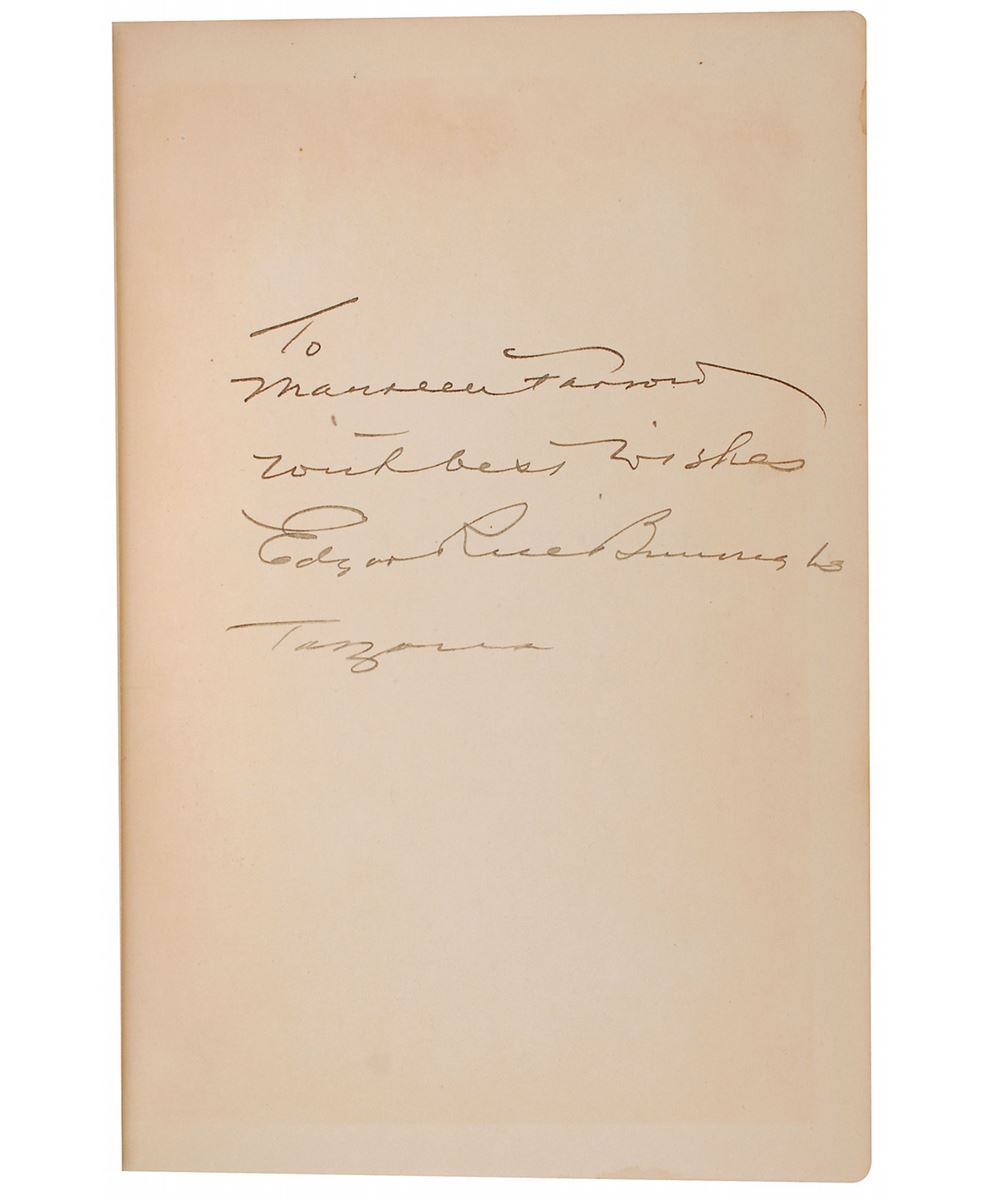 To
Maureen Farrow
with best wishes
Edgar Rice Burroughs
Tarzana